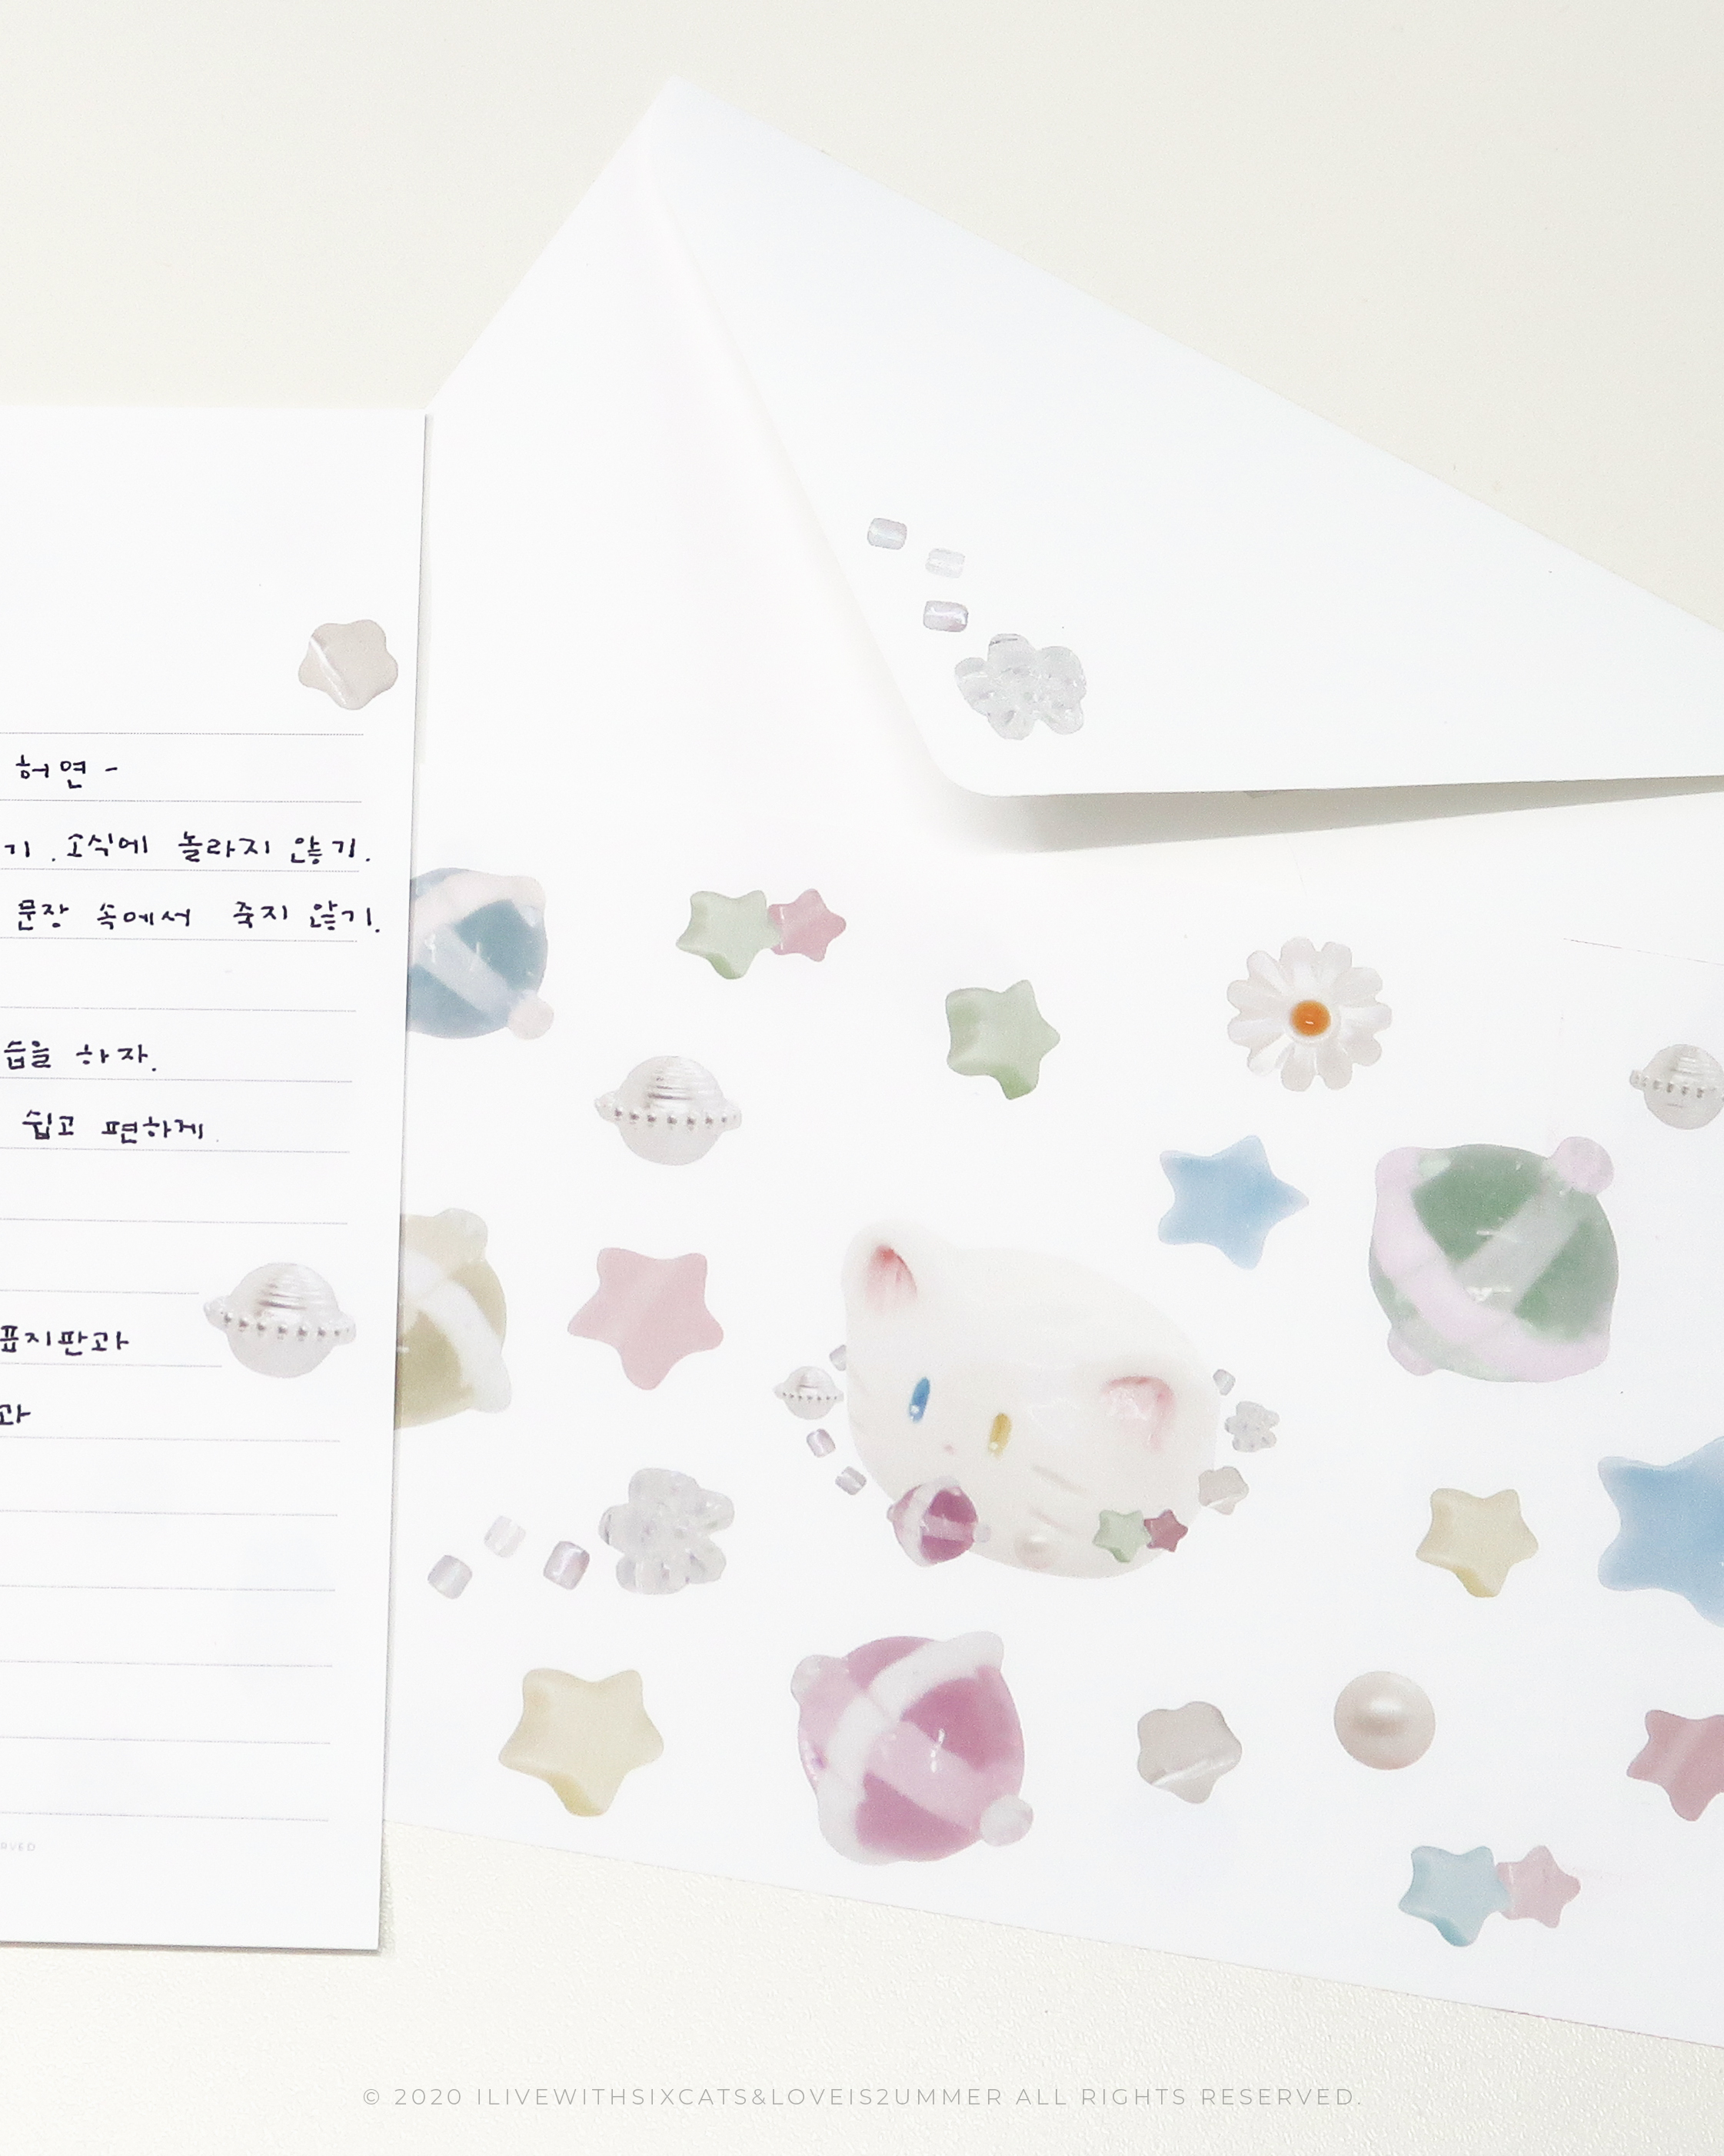 허연 -
기. 소식에 놀라지 않기.
문장 속에서 죽지 않기.
습을 하자.
쉽고 편하게.
표지판과
과
RVED
© 2020 ILIVEWITHSIXCATS&LOVEIS2UMMER ALL RIGHTS RESERVED.